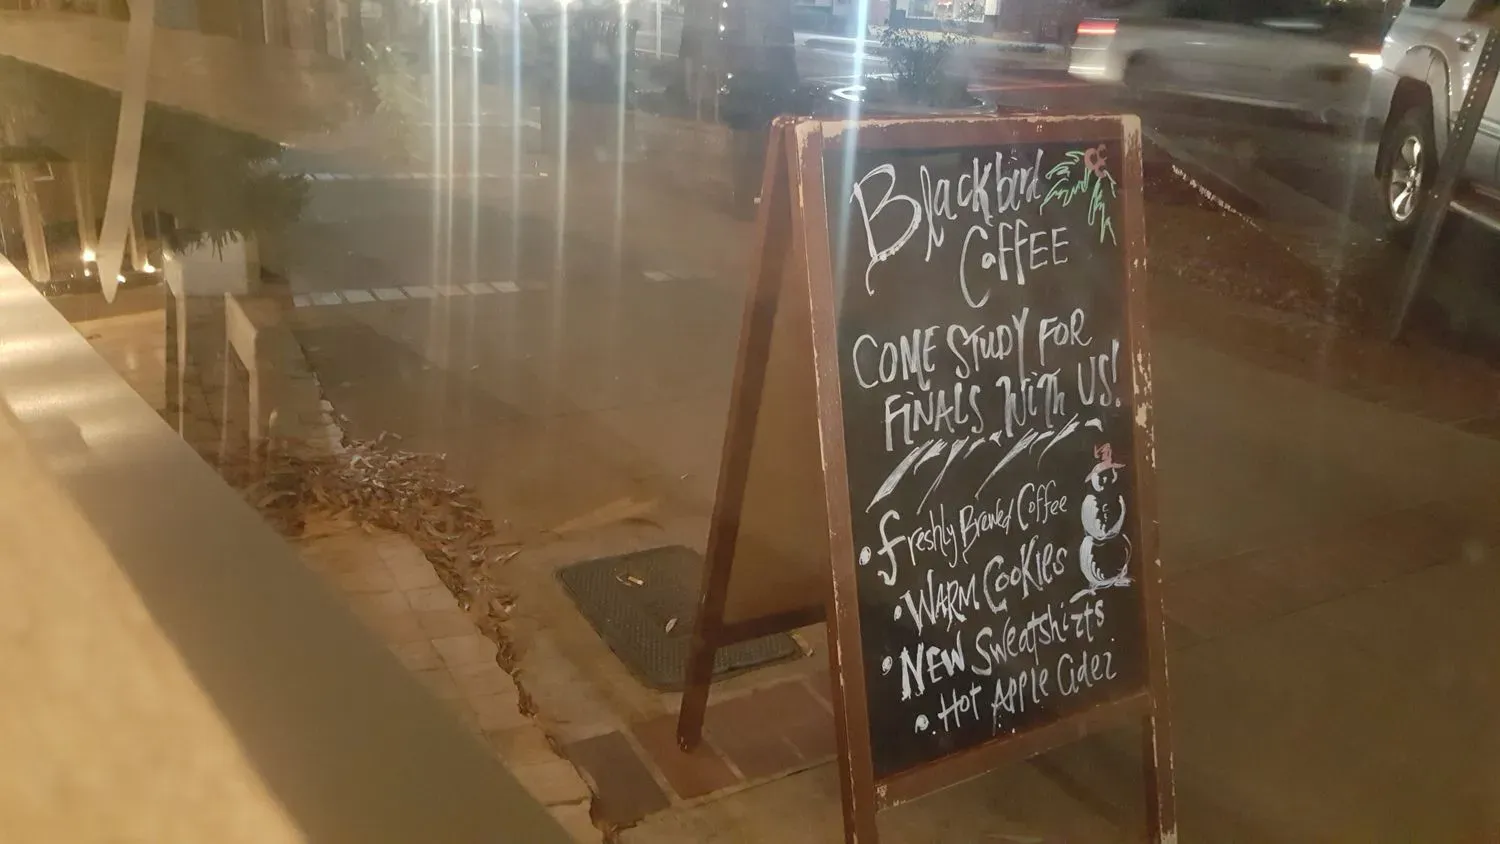 Blackbird
Coffee
Come Study For
Finals With Us!
• Freshly Brewed Coffee
• Warm Cookies
• New Sweatshirts
• Hot Apple Cider